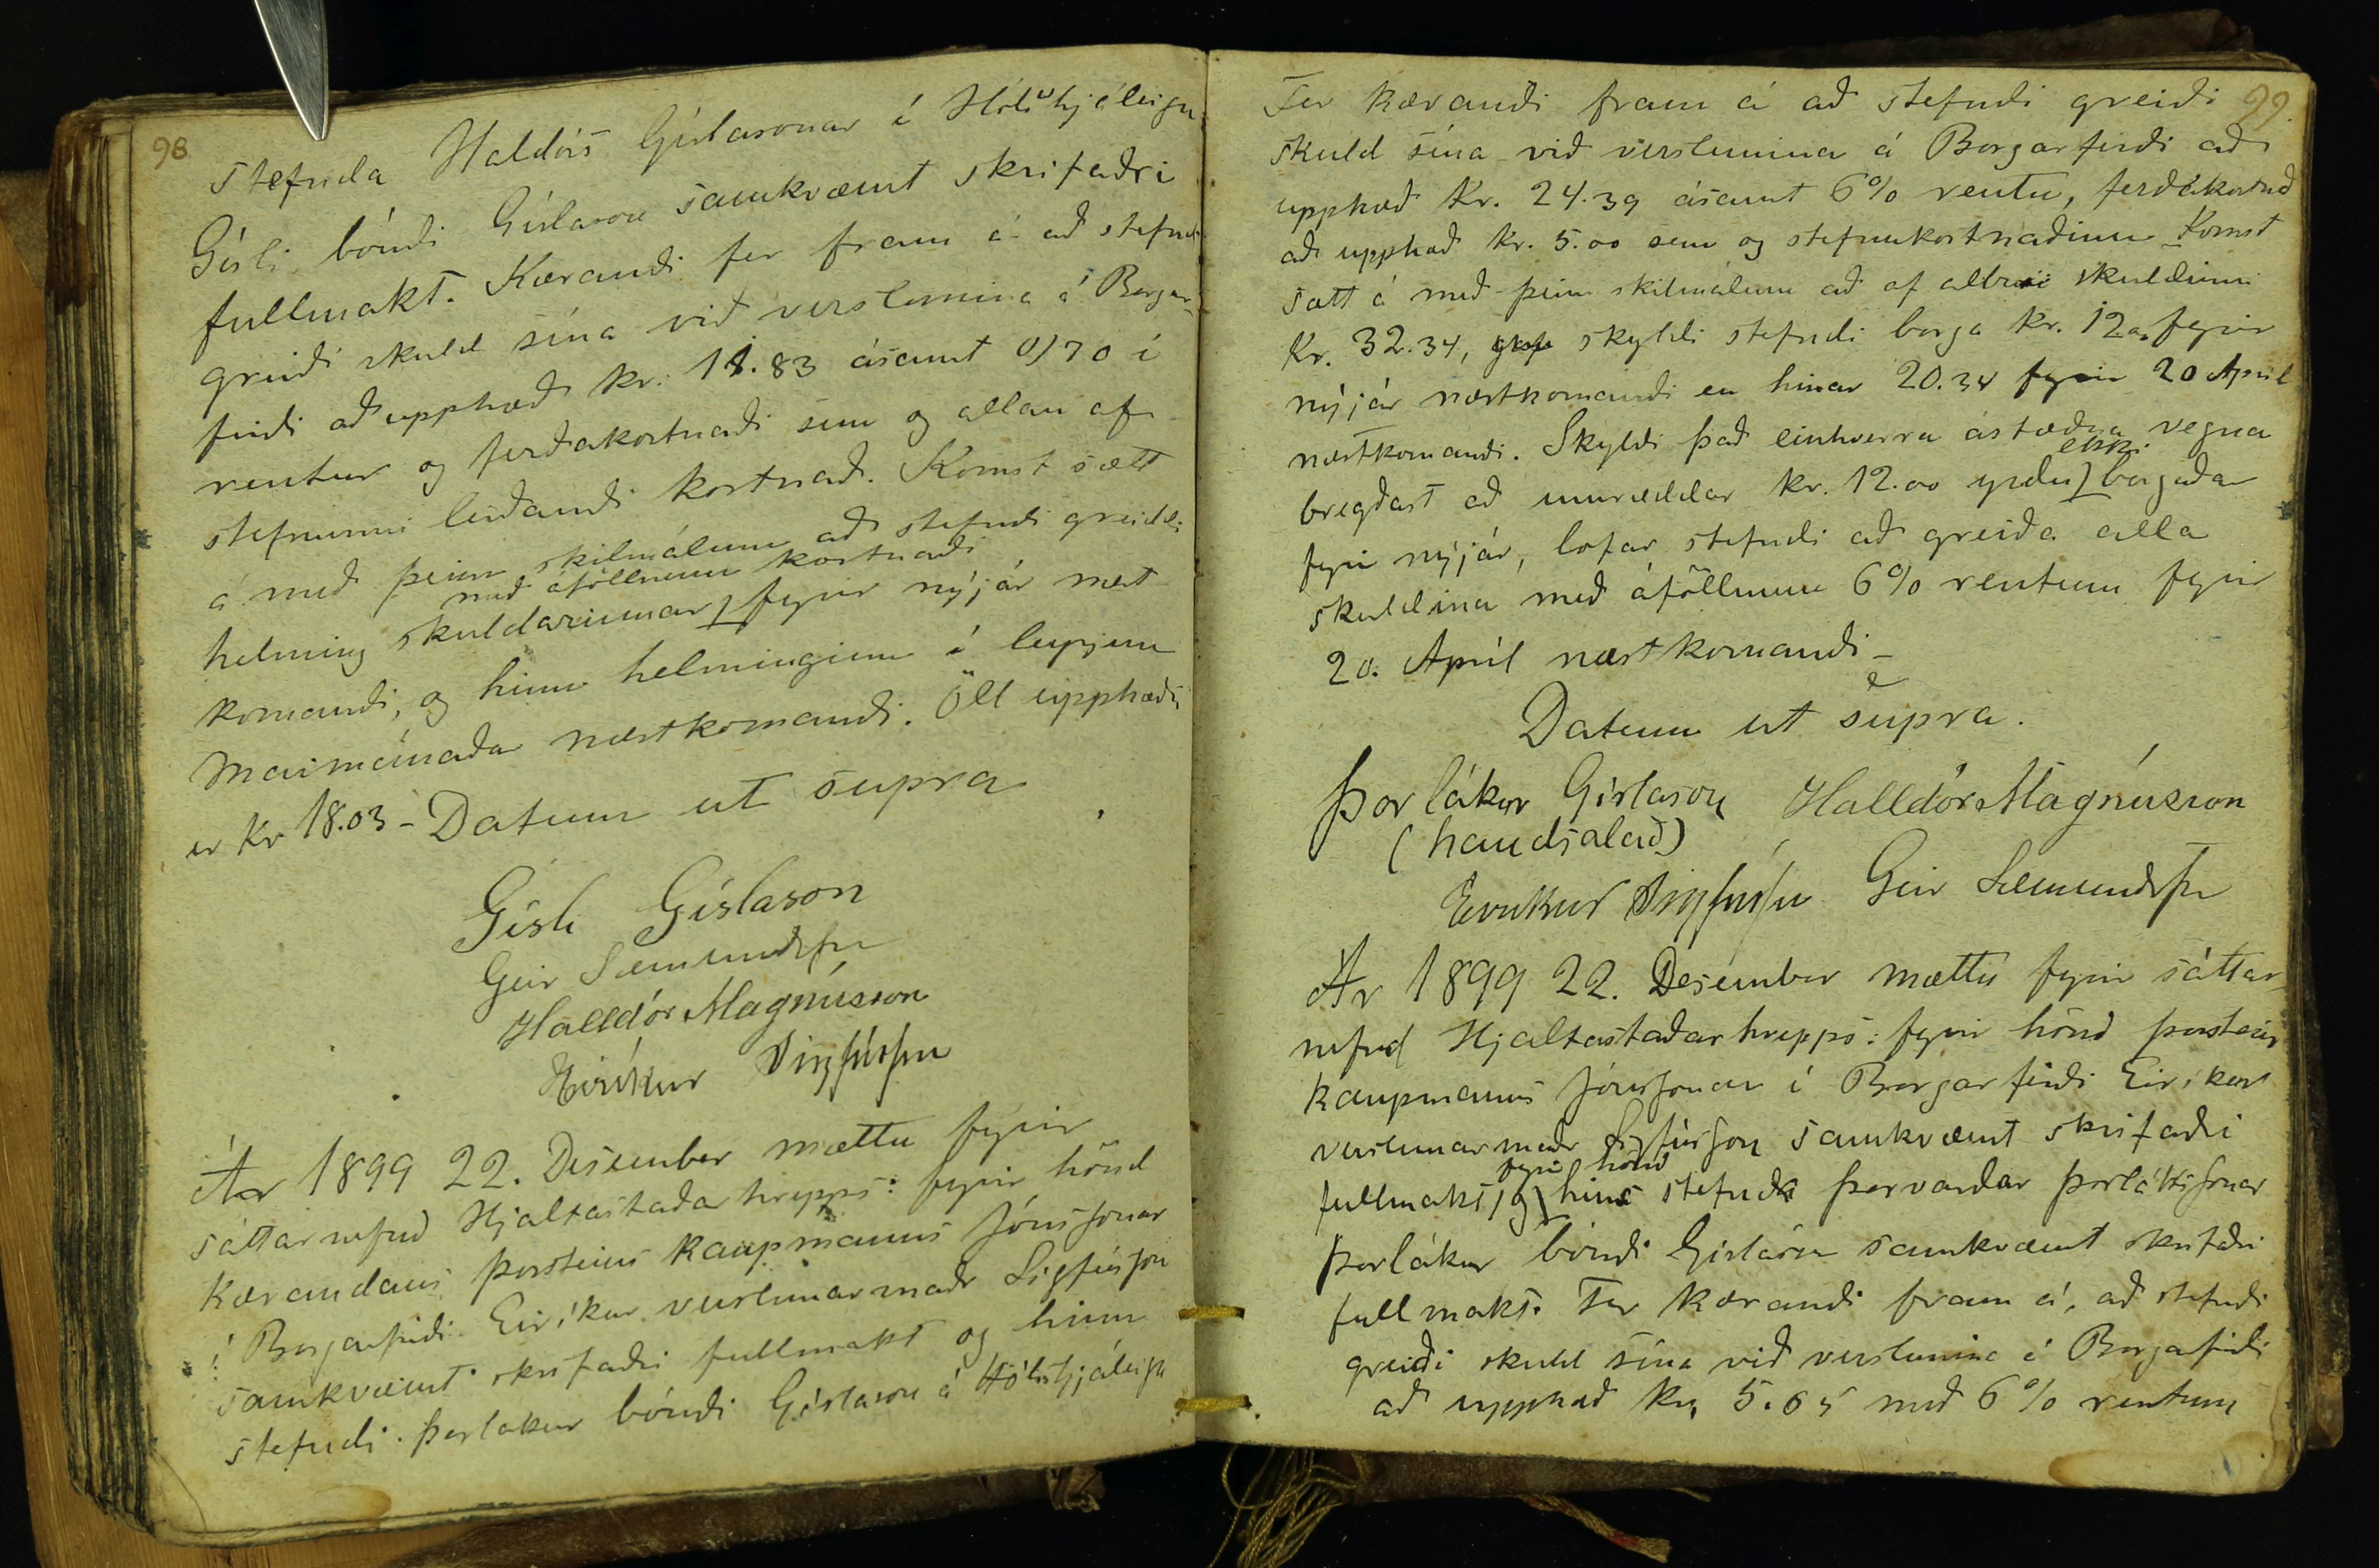 98
stefnda Haldórs Gíslasonar í Hólshjáleigu
Gísli bóndi Gíslason samkvæmt skrifaðri
fullmakt. Kærandi fer fram á að stefndi
greiði skuld sína við verslunina á Borgar-
firði að upphæð kr. 11.83 ásamt 0/70 í
rentur og ferðakostnaði sem og allan af
stefnunni leiðandi kostnað. Komst sætt
á með þeim skilmálum að stefndi greiddi
með áföllnum kostnaði
helming skuldarinnar fyrir nýjár næst
komandi, og hinn helminginn í
Maimánaðar næstkomandi. Öll upphæðin
er Kr 18.03 - Datum ut supra
Gísli Gíslason
Geir Sæmundsson
Halldór Magnússon
Eiríkur Sigfússon
Ár 1899 22. Desember mættu fyrir
sáttarnefnd Hjaltastaðarhrepps: fyrir hönd
Kærandans Þorsteins kaupmanns Jónssonar
í Borgarfirði Eiríkur verslunarmaðr Sigfússon
samkvæmt skrifaðri fullmakt og hinn
stefndi Þorlákur bóndi Gíslason á Hólshjáleigu
99.
Fer Kærandi fram á að stefndi greiði
skuld sína við verslunina á Borgarfirði að
upphæð Kr. 24.39 ásamt 6% rentu, ferðakostnað
að upphæð kr. 5.00 sem og stefnukostnaðinn Komst
sætt á með þeim skilmálum að af allri skuldinni
Kr. 32.34, skyldi stefndi borga kr. 12.00 fyrir
nýjár næstkomandi en hinar 20.34 fyrir 20 April
næstkomandi. Skyldi það einhverra ástæðna vegna
ekki
bregðast að umræddar kr. 12.00 yrðu borgaðar
fyrir nýjár, lofar stefndi að greiða alla
skuldina með áföllnum 6% rentum fyrir
20. Apríl næstkomandi -
Datum ut supra.
Þorlákur Gíslason Halldór Magnússon
(handsalað)
Eiríkur Sigfússon Geir Sæmundsson
Ár 1899 22. Desember mættu fyrir sáttar-
nefnd Hjaltastaðarhrepps: fyrir hönd Þorsteins
kaupmanns Jónssonar í Borgarfirði Eiríkur
verslunarmaðr Sigfússon samkvæmt skrifaðri
fyrir hönd
fullmakt, og hins stefnda Þorvarðar Þorlákssonar
Þorlákur bóndi Gíslason samkvæmt skrifaðri
fullmakt. Fer Kærandi fram á, að stefndi
greiði skuld sína við verslunina á Borgarfirði
að upphæð kr. 5.65 með 6% rentum